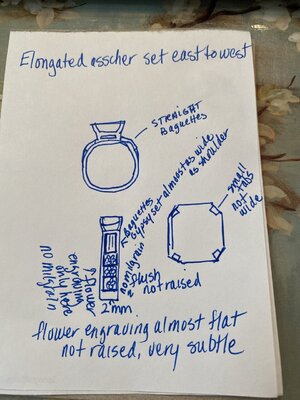 Elongated asscher set east to west
STRAIGHT
Baguettes
Baguettes
Gypsy set almost as wide
as shoulder
small
tabs
not
wide
no milgrain
flush
not raised
flower
engraving
only here
no milgrain
2mm
flower engraving almost flat
not raised, very subtle